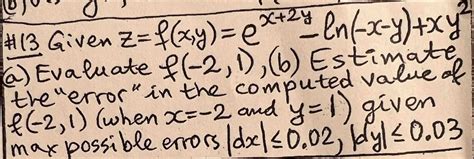 #13 Given z=f(x,y)=e^{x+2y}-ln(-x-y)+xy^2
(a) Evaluate f(-2,1), (b) Estimate
the "error" in the computed value of
f(-2,1) (when x=-2 and y=1) given
max possible errors |dx|≤0.02, |dy|≤0.03